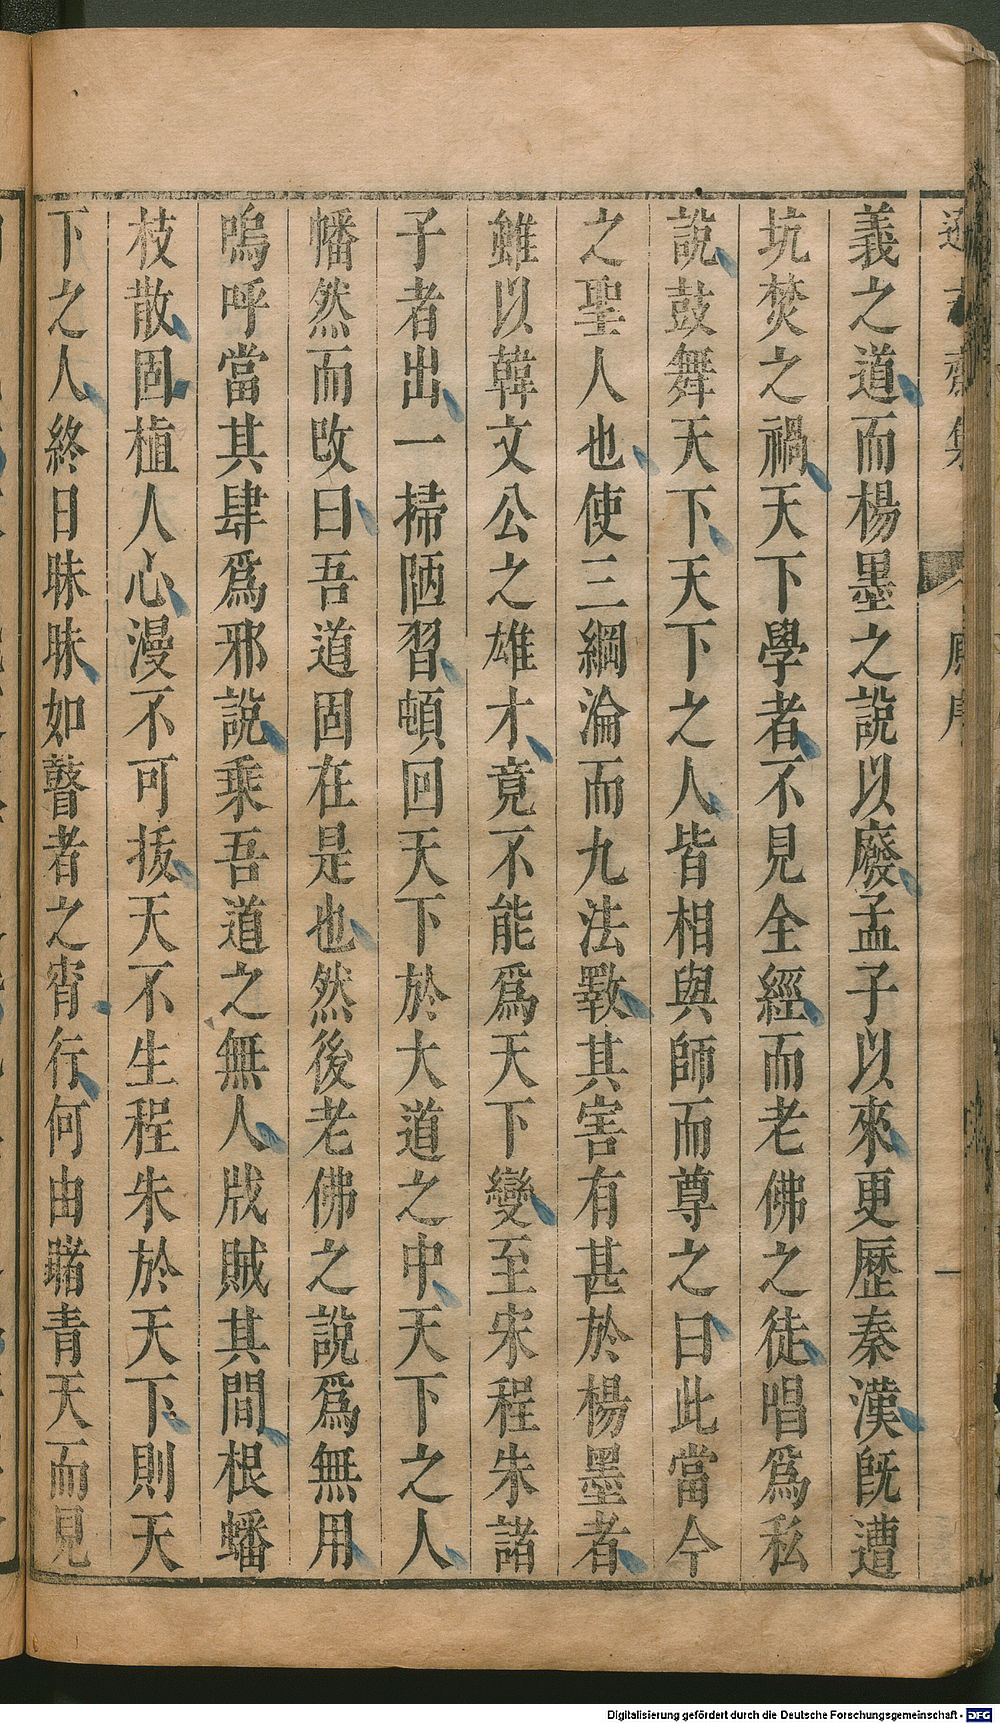 義之道而楊墨之說以廢孟子以來更歷秦漢旣遭
坑焚之禍天下學者不見全經而老佛之徒唱爲私
說鼓舞天下天下之人皆相與師而尊之曰此當今
之聖人也使三綱淪而九法斁其害有甚於楊墨者
雖以韓文公之雄才竟不能爲天下變至宋程朱諸
子者出一掃陋習頓回天下於大道之中天下之人
幡然而改曰吾道固在是也然後老佛之說爲無用
嗚呼當其肆爲邪說乘吾道之無人戕賊其間根蟠
枝散固植人心漫不可拔天不生程朱於天下則天
下之人終日昧昧如瞽者之宵行何由睹青天而見
Digitalisierung gefördert durch die Deutsche Forschungsgemeinschaft - DFG